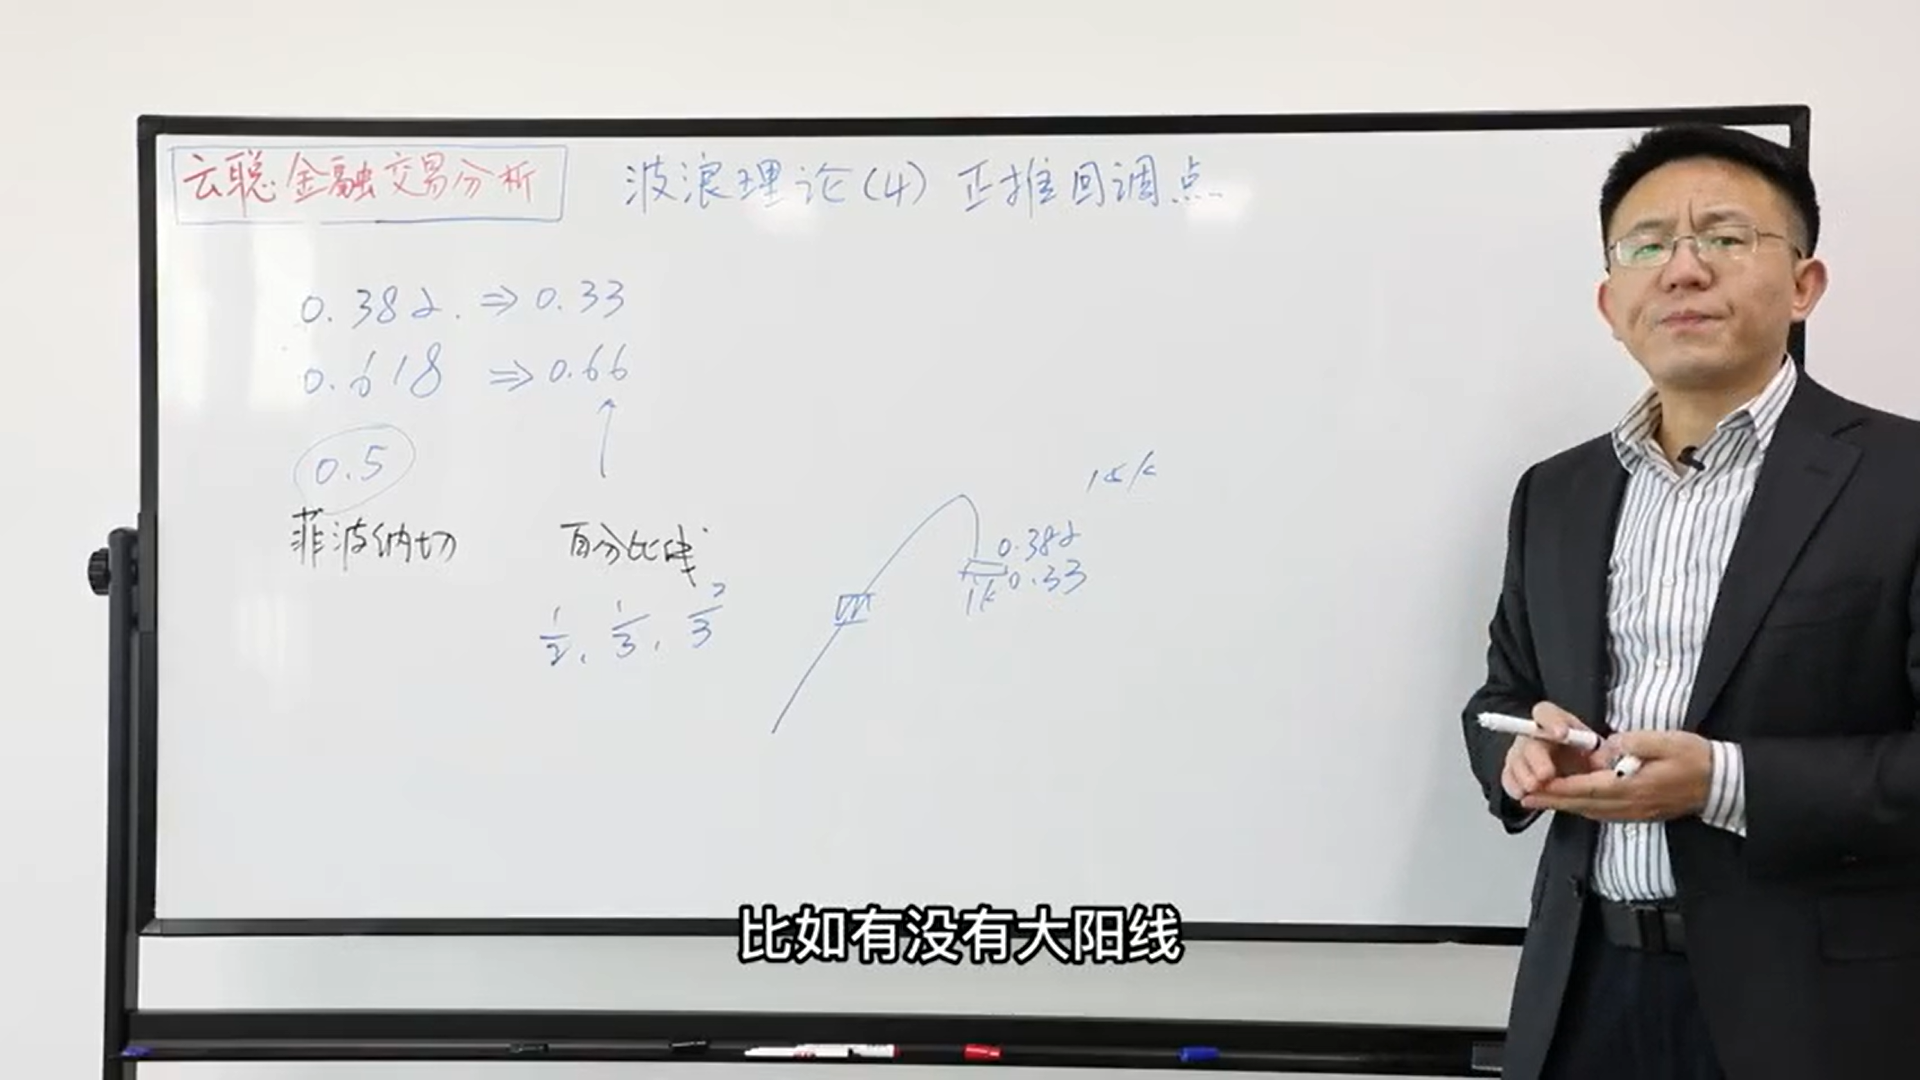 云聪金融交易分析
波浪理论(4) 正推回调点
0.382. ⇒ 0.33
0.618 ⇒ 0.66
0.5
菲波纳切
百分比线
1/2, 1/3, 2/3
0.382
0.33
1k
比如有没有大阳线